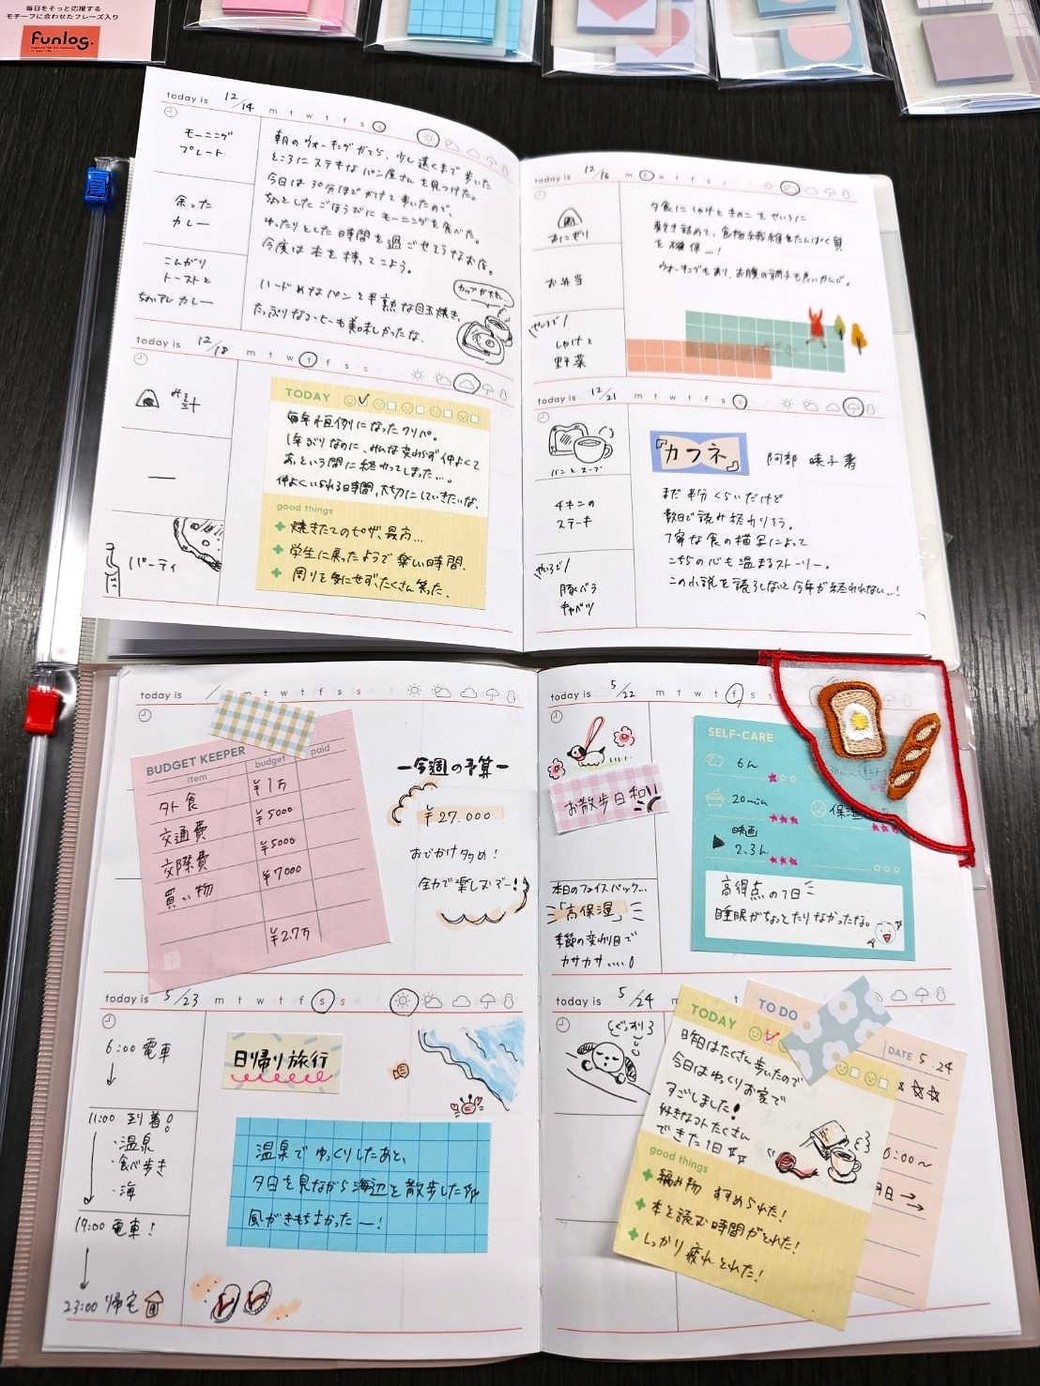 毎日をそっと応援する
モチーフに合わせたフレーズ入り
funlog.
today is 12/14 m t w t f s s
モーニング
プレート
余った
カレー
こんがり
トーストと
カレー
朝のウォーキングがてら、少し遠くまで歩いた
ところにステキなパン屋さんを見つけた。
今日は30分ほどかけて歩いたので、
ちょっとしたごほうびにモーニングを食べた。
ゆったりとした時間を過ごせそうなお店。
今度は本を持ってこよう。
ハードめなパンと半熟な目玉焼き、
たっぷりなコーヒーも美味しかったな。
カップが大きい…
today is 12/16 m t w t f s s
おにぎり
お弁当
せいろで
しゃけと
野菜
夕食にしゃけときのこをせいろに
敷き詰めて、食物繊維とたんぱく質
を確保ー!
ウォーキングもあり、お腹の調子も良いかんじ。
today is 12/18 m t w t f s s
みそ汁
ー
パーティ
TODAY
毎年恒例になったクリパ。
1年ぶりなのに、みんな変わらず仲よくて
あっという間に終わってしまった…。
仲よくいられる時間、大切にしていきたいな。
good things
焼きたてのピザ、最高…
学生に戻ったようで楽しい時間。
周りを気にせず、たくさん笑った。
today is 12/21 m t w t f s s
パンとスープ
チキンの
ステーキ
せいろで
豚バラ
キャベツ
『カフネ』
阿部 暁子 著
まだ半分くらいだけど
数日で読み終わりそう。
丁寧な食の描写によって
こちらの心も温まるストーリー。
この小説を読了しないと今年が終われない…!
today is / m t w t f s s
BUDGET KEEPER
item budget paid
外食 ¥1万
交通費 ¥5000
交際費 ¥5000
買い物 ¥7000
¥2.7万
ー今週の予算ー
¥27.000
おでかけ多め!
全力で楽しむぞー!!
today is 5/22 m t w t f s s
お散歩日和!!
本日のフェイスパック…
「高保湿」
季節の変わり目で
カサカサ….
SELF-CARE
6h
20min
映画
2.3h
保湿
高得点の1日
睡眠がちょっとたりなかったな。
today is 5/23 m t w t f s s
6:00 電車
11:00 到着!
・温泉
・食べ歩き
・海
19:00 電車!
23:00 帰宅
日帰り旅行
温泉でゆっくりしたあと、
夕日を見ながら海辺を散歩した
風がきもちよかったー!
today is 5/24
ぐっすり
TODAY
昨日はたくさん歩いたので
今日はゆっくりお家で
すごしました!
好きなコトたくさん
できた1日
good things
編み物 すすめられた!
本を読む時間がとれた!
しっかり疲れとれた!
TO DO
DATE 5.24
:00〜